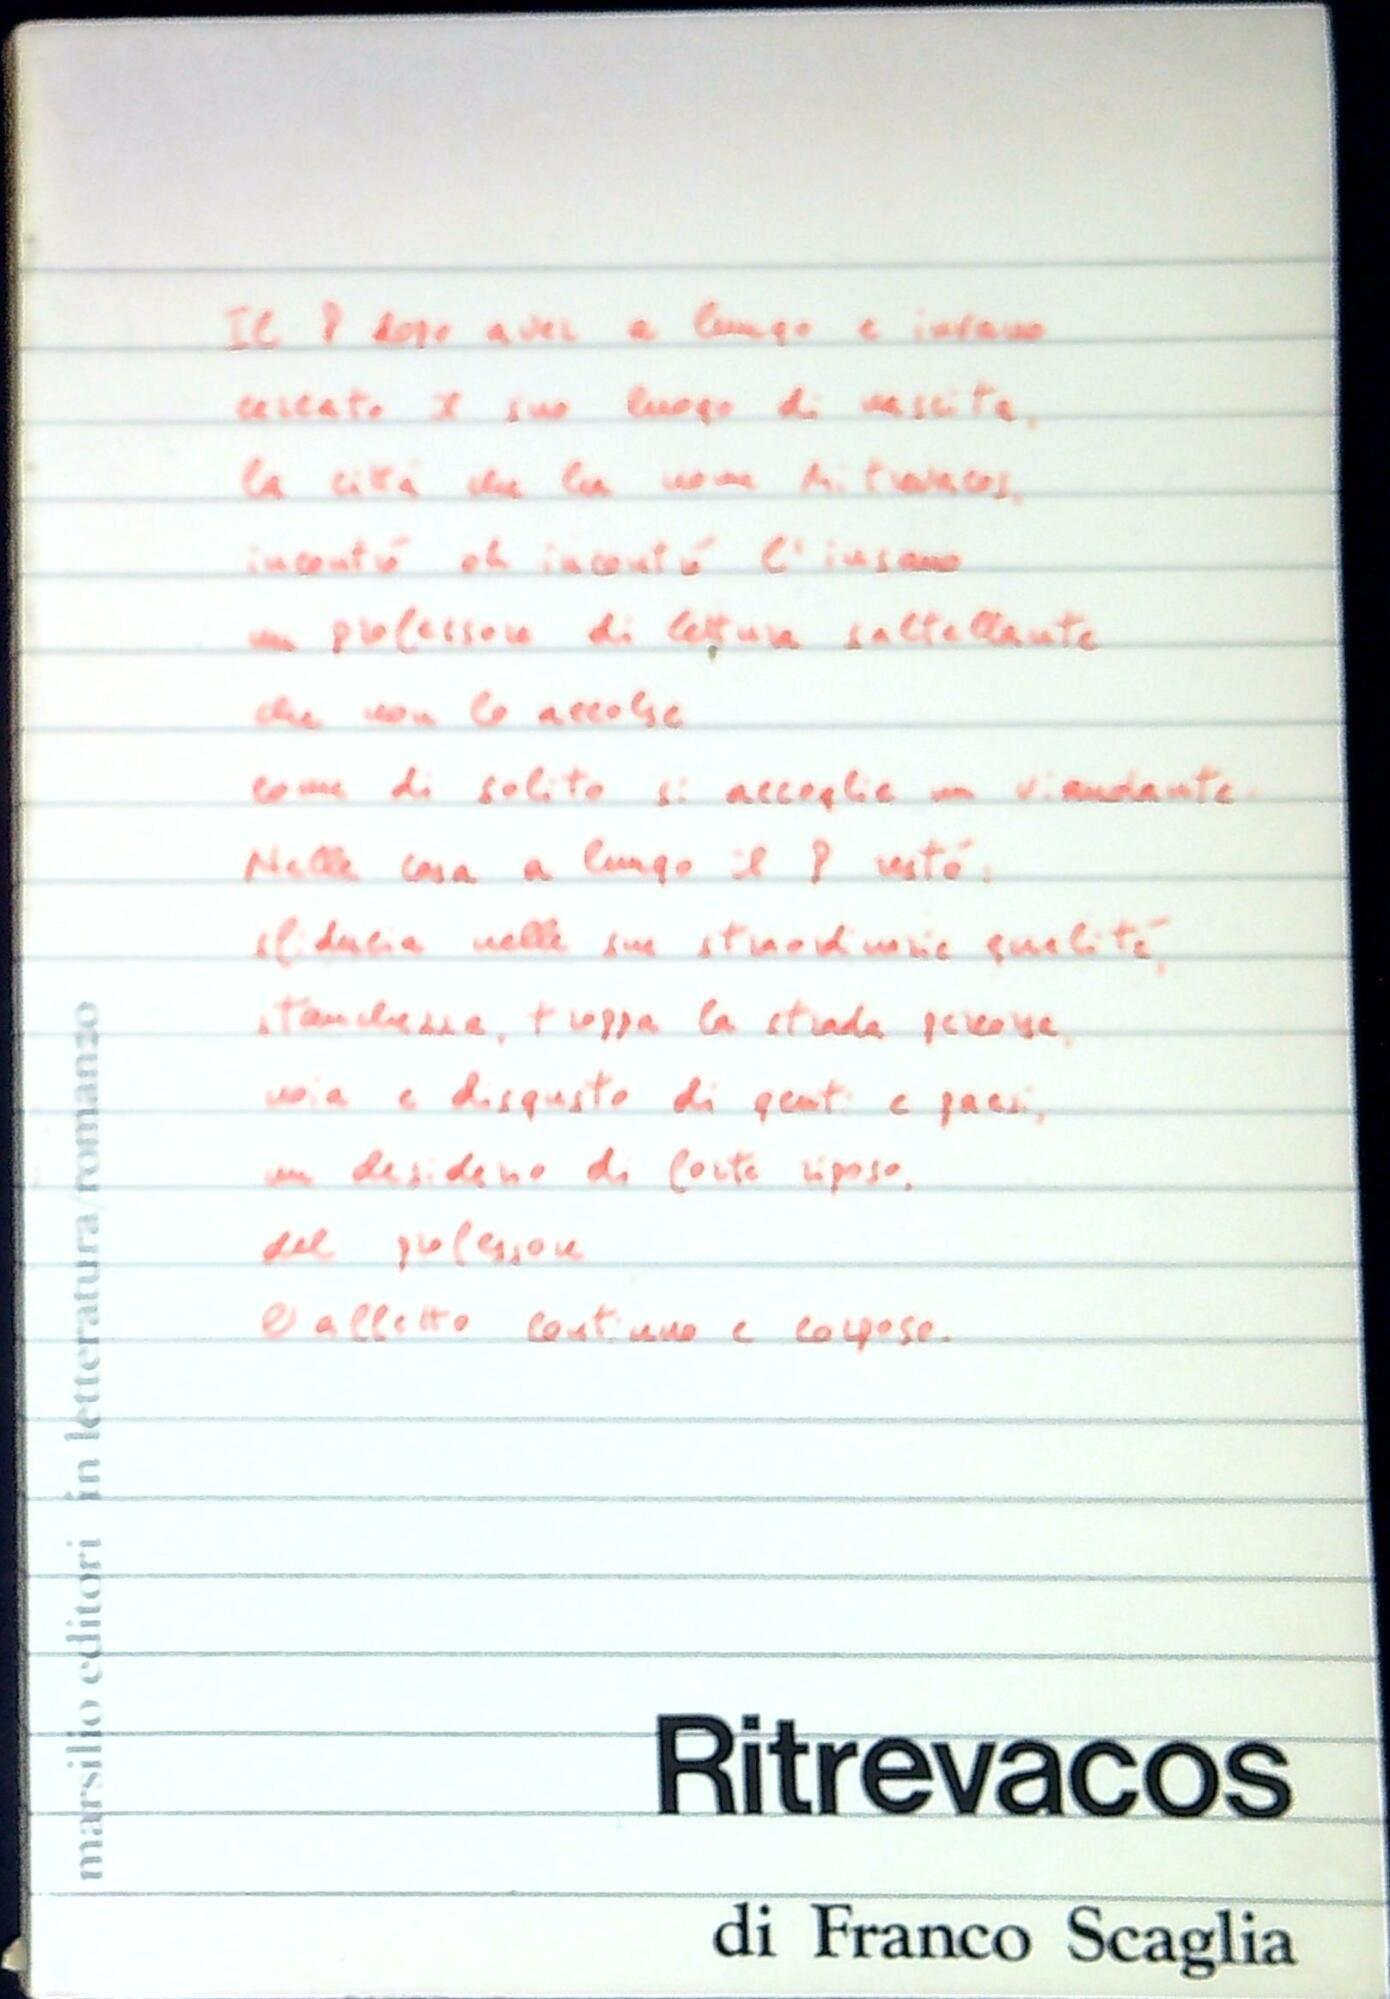 Il P dopo aver a lungo e invano
cercato il suo luogo di nascita,
la città che ha nome Ritrevacos,
incontrò oh incontrò l'insano
un professore di lettura saltellante
che non lo accolse
come di solito si accoglie un viandante.
Nella casa a lungo il P restò:
sfiducia nelle sue straordinarie qualità,
stanchezza, troppa la strada percorsa,
noia e disgusto di genti e paesi,
un desiderio di forte riposo,
del professore
l'affetto continuo e corposo.
marsilio editori in letteratura/romanzo
Ritrevacos
di Franco Scaglia